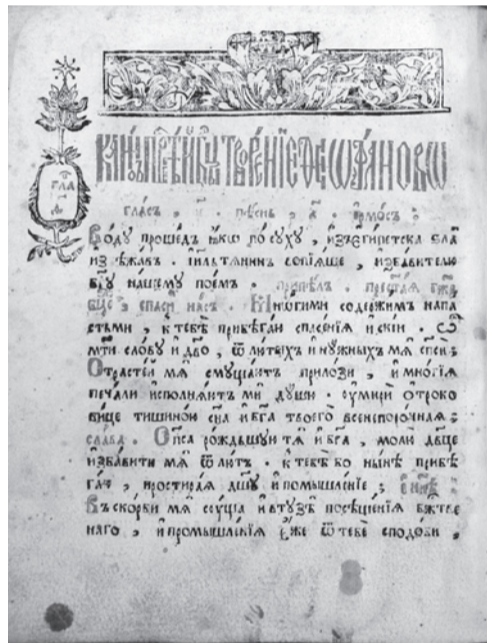 КАНѠ́НЪ ПРЕСТ҃ѢЙ БЦ҃Ы ТВОРЕ́НЇЕ ФЕѠФА́НОВО
гла́съ , и҃ . пѣ́снь , а҃ . і҆рмо́съ :
Во́дꙋ проше́дъ ꙗ҆́кѡ по́ сꙋхꙋ , и҆з̾ є҆ги́петска ѕла̀
и҆збѣжа́въ . і҆и҃льтѧнинъ вопїѧ́ше , и҆зба́вителю
и҆ бг҃ꙋ на́шемꙋ пое́мъ . припѣ́лъ . прест҃а́ѧ бц҃е
спасѝ на́съ . Мно́гими содержи́мъ напа́
стьми , к тебѣ̀ прибѣга́ю спасе́нїѧ и҆скі́й . ѽ
мт҃и сло́вꙋ и҆ дв҃о , ѿ лю́тыхъ и҆ нꙋ́жныхъ мѧ̀ сп҃сѝ :
Страсте́й мѧ̀ смꙋща́ютъ прило́зи , и҆ мно́гїѧ
печа́ли и҆сполнѧ́ютъ мѝ дꙋ́шꙋ . ᲂу҆мирѝ ѻ҆троко
ви́це тишино́ю сн҃а и҆ бг҃а твоегѡ̀ всенепоро́чнаѧ :
сла́ва . Сп҃са ро́ждьшꙋю тѧ̀ и҆ бг҃а , молю̀ дв҃це
и҆зба́вити мѧ̀ ѿ лю́тъ . к тебѣ́ бо ны́нѣ прибѣ
га́ю , простира́ѧ дш҃ꙋ и҆ помышле́нїе ; и҆ нн҃ѣ :
В̾ ско́рби мѧ̀ сꙋ́ща и҆ в̾ тꙋзѣ̀ посѣще́нїѧ бж҃тве
наго , и҆ промышле́нїѧ є҆́же ѿ тебє̀ сподо́би ,